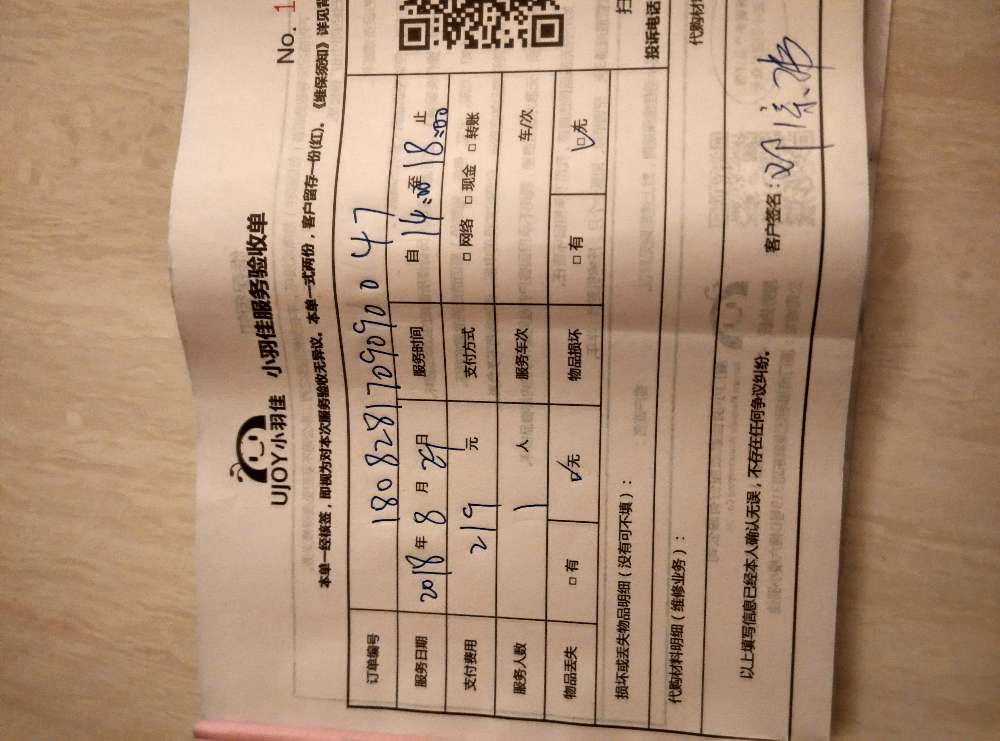 No. 1
UJOY小羽佳 小羽佳服务验收单
本单一经核签，即视为对本次服务验收无异议。本单一式两份，客户留存一份(红)。《维保须知》详见背
订单编号 180828170909004 7
服务日期 2018年8月29日 服务时间 自14:00至18:00止
支付费用 219元 支付方式 □网络 □现金 □转账
服务人数 1人 服务车次 车/次
物品丢失 □有 ☑无 物品损坏 □有 ☑无
损坏或丢失物品明细（没有可不填）：
扫
投诉电话
代购材料明细（维修业务）：
代购材料
以上填写信息已经本人确认无误，不存在任何争议纠纷。 客户签名：